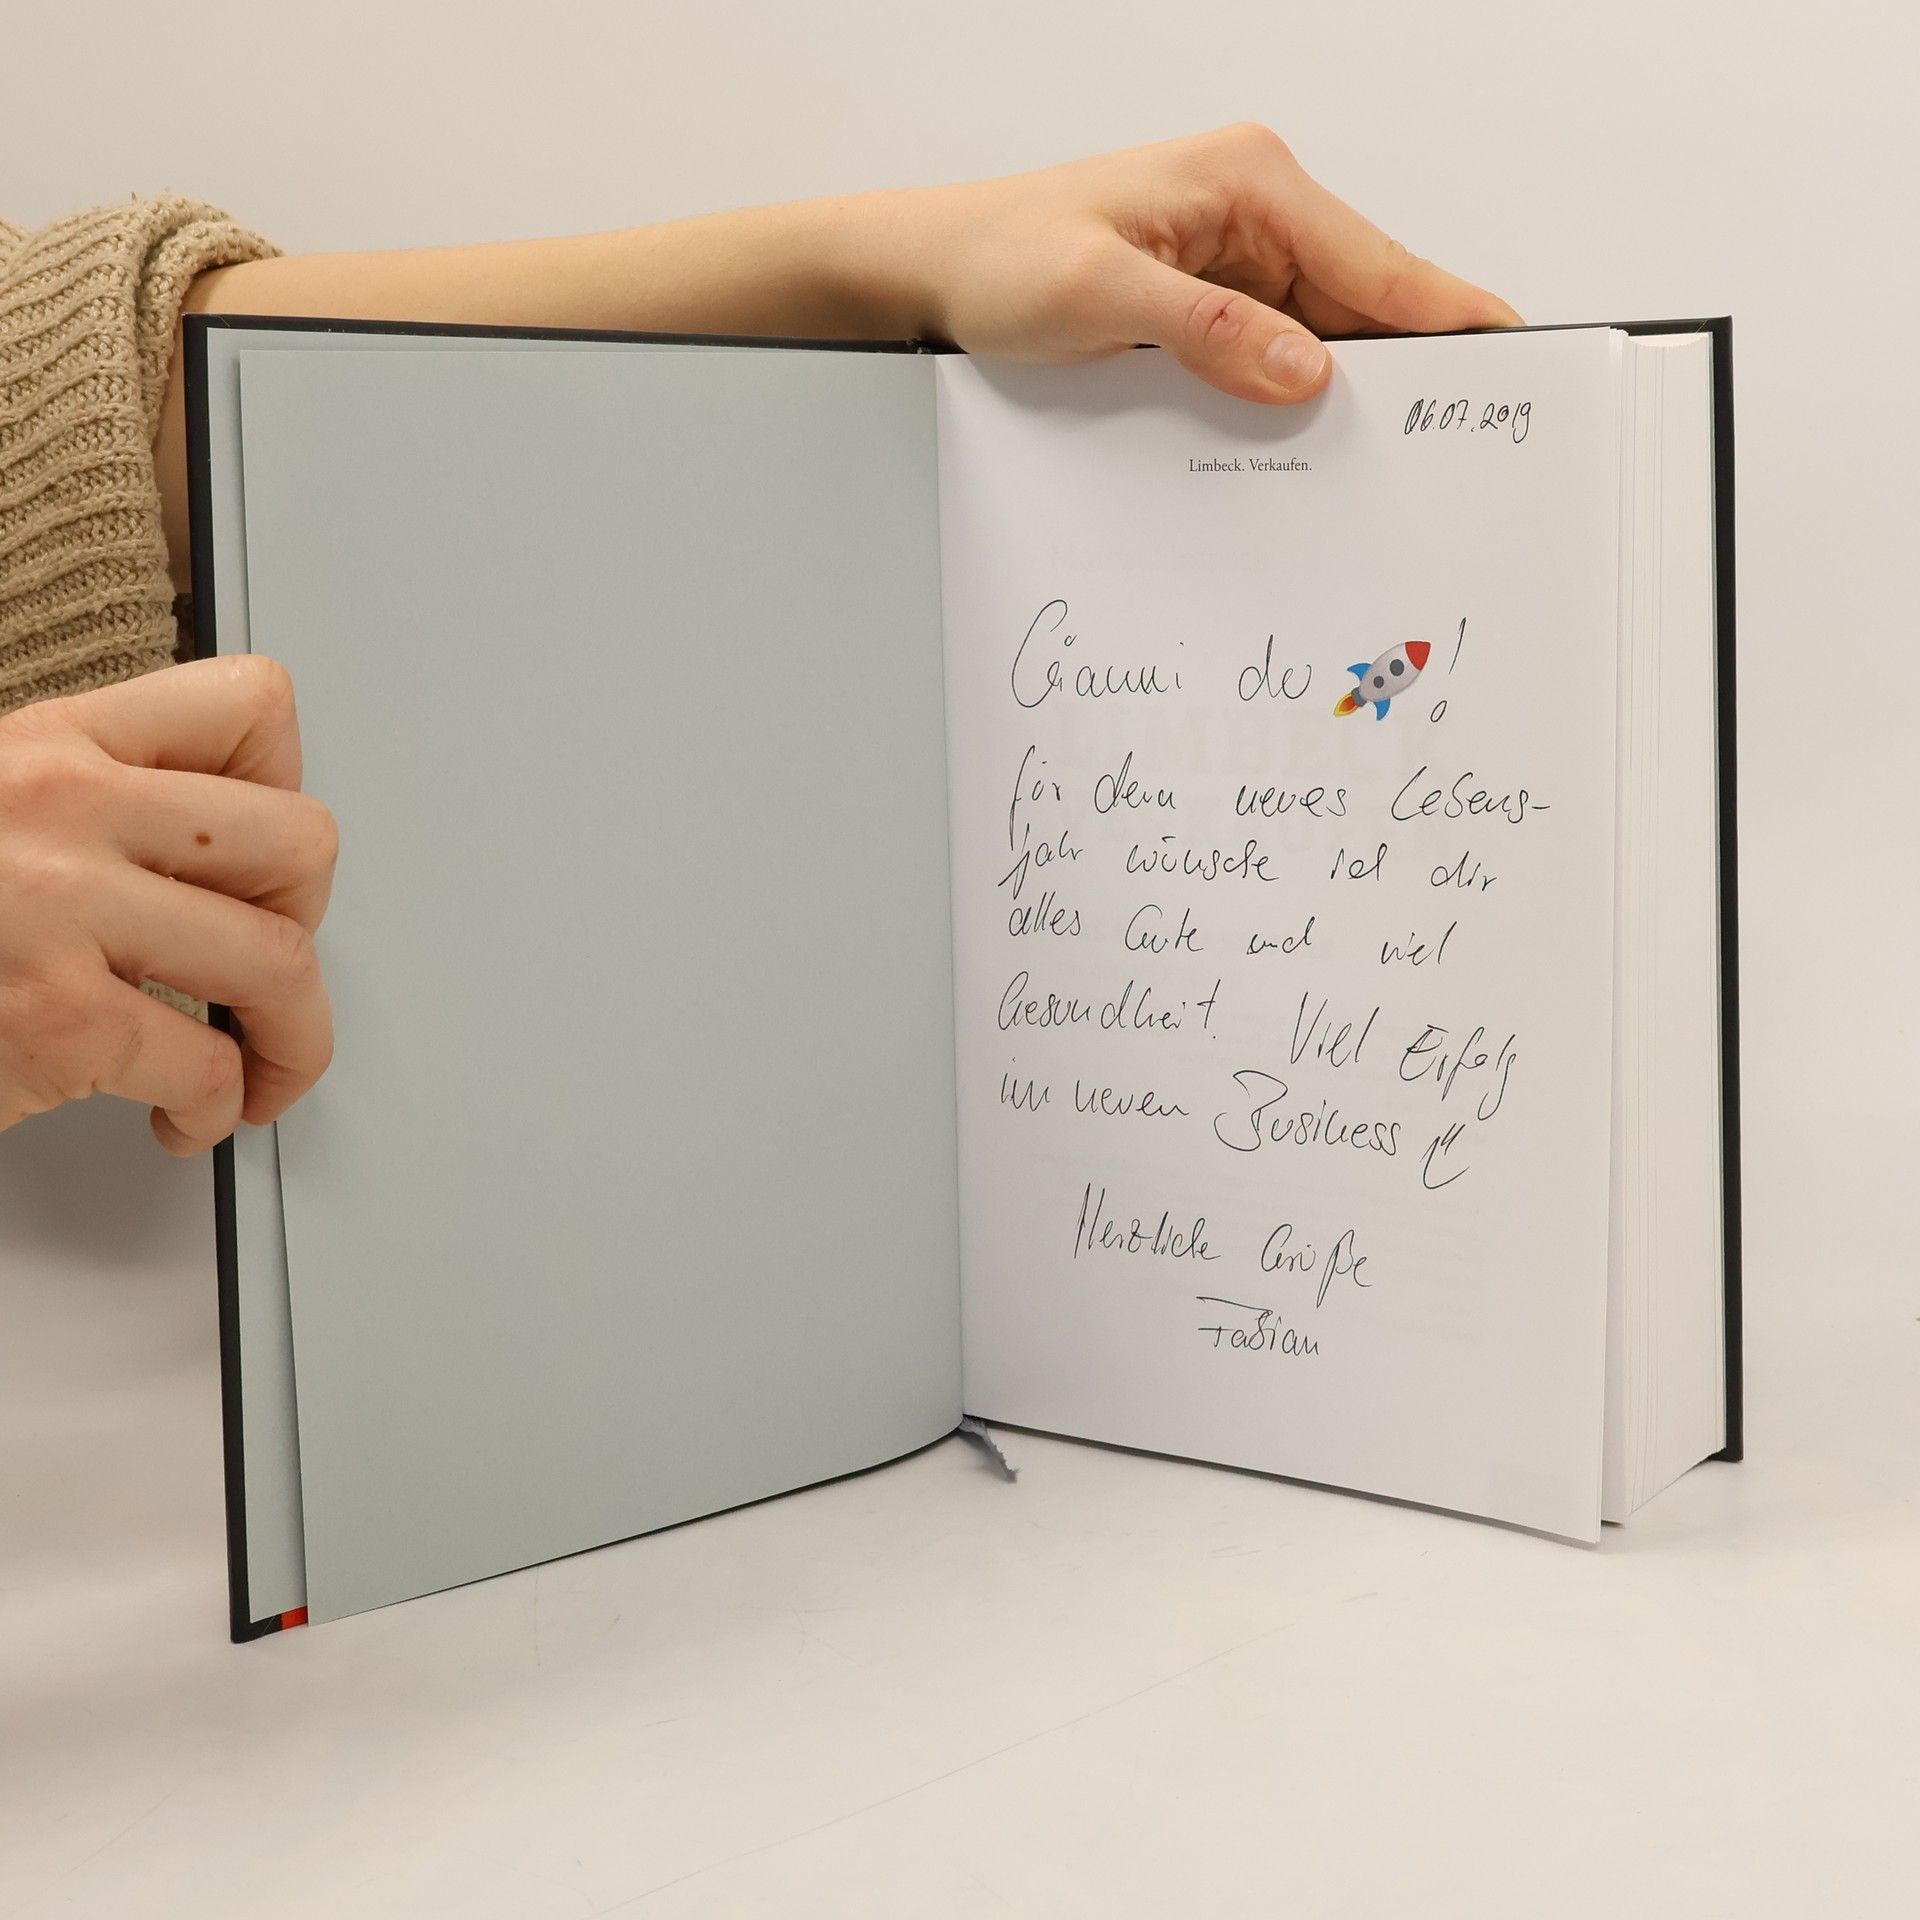 06.07.2019
Limbeck. Verkaufen.
Gianni du 🚀!
für dein neues Lebens-
jahr wünsche ich dir
alles Gute und viel
Gesundheit! Viel Erfolg
im neuen Business
Herzliche Grüße
Fabian